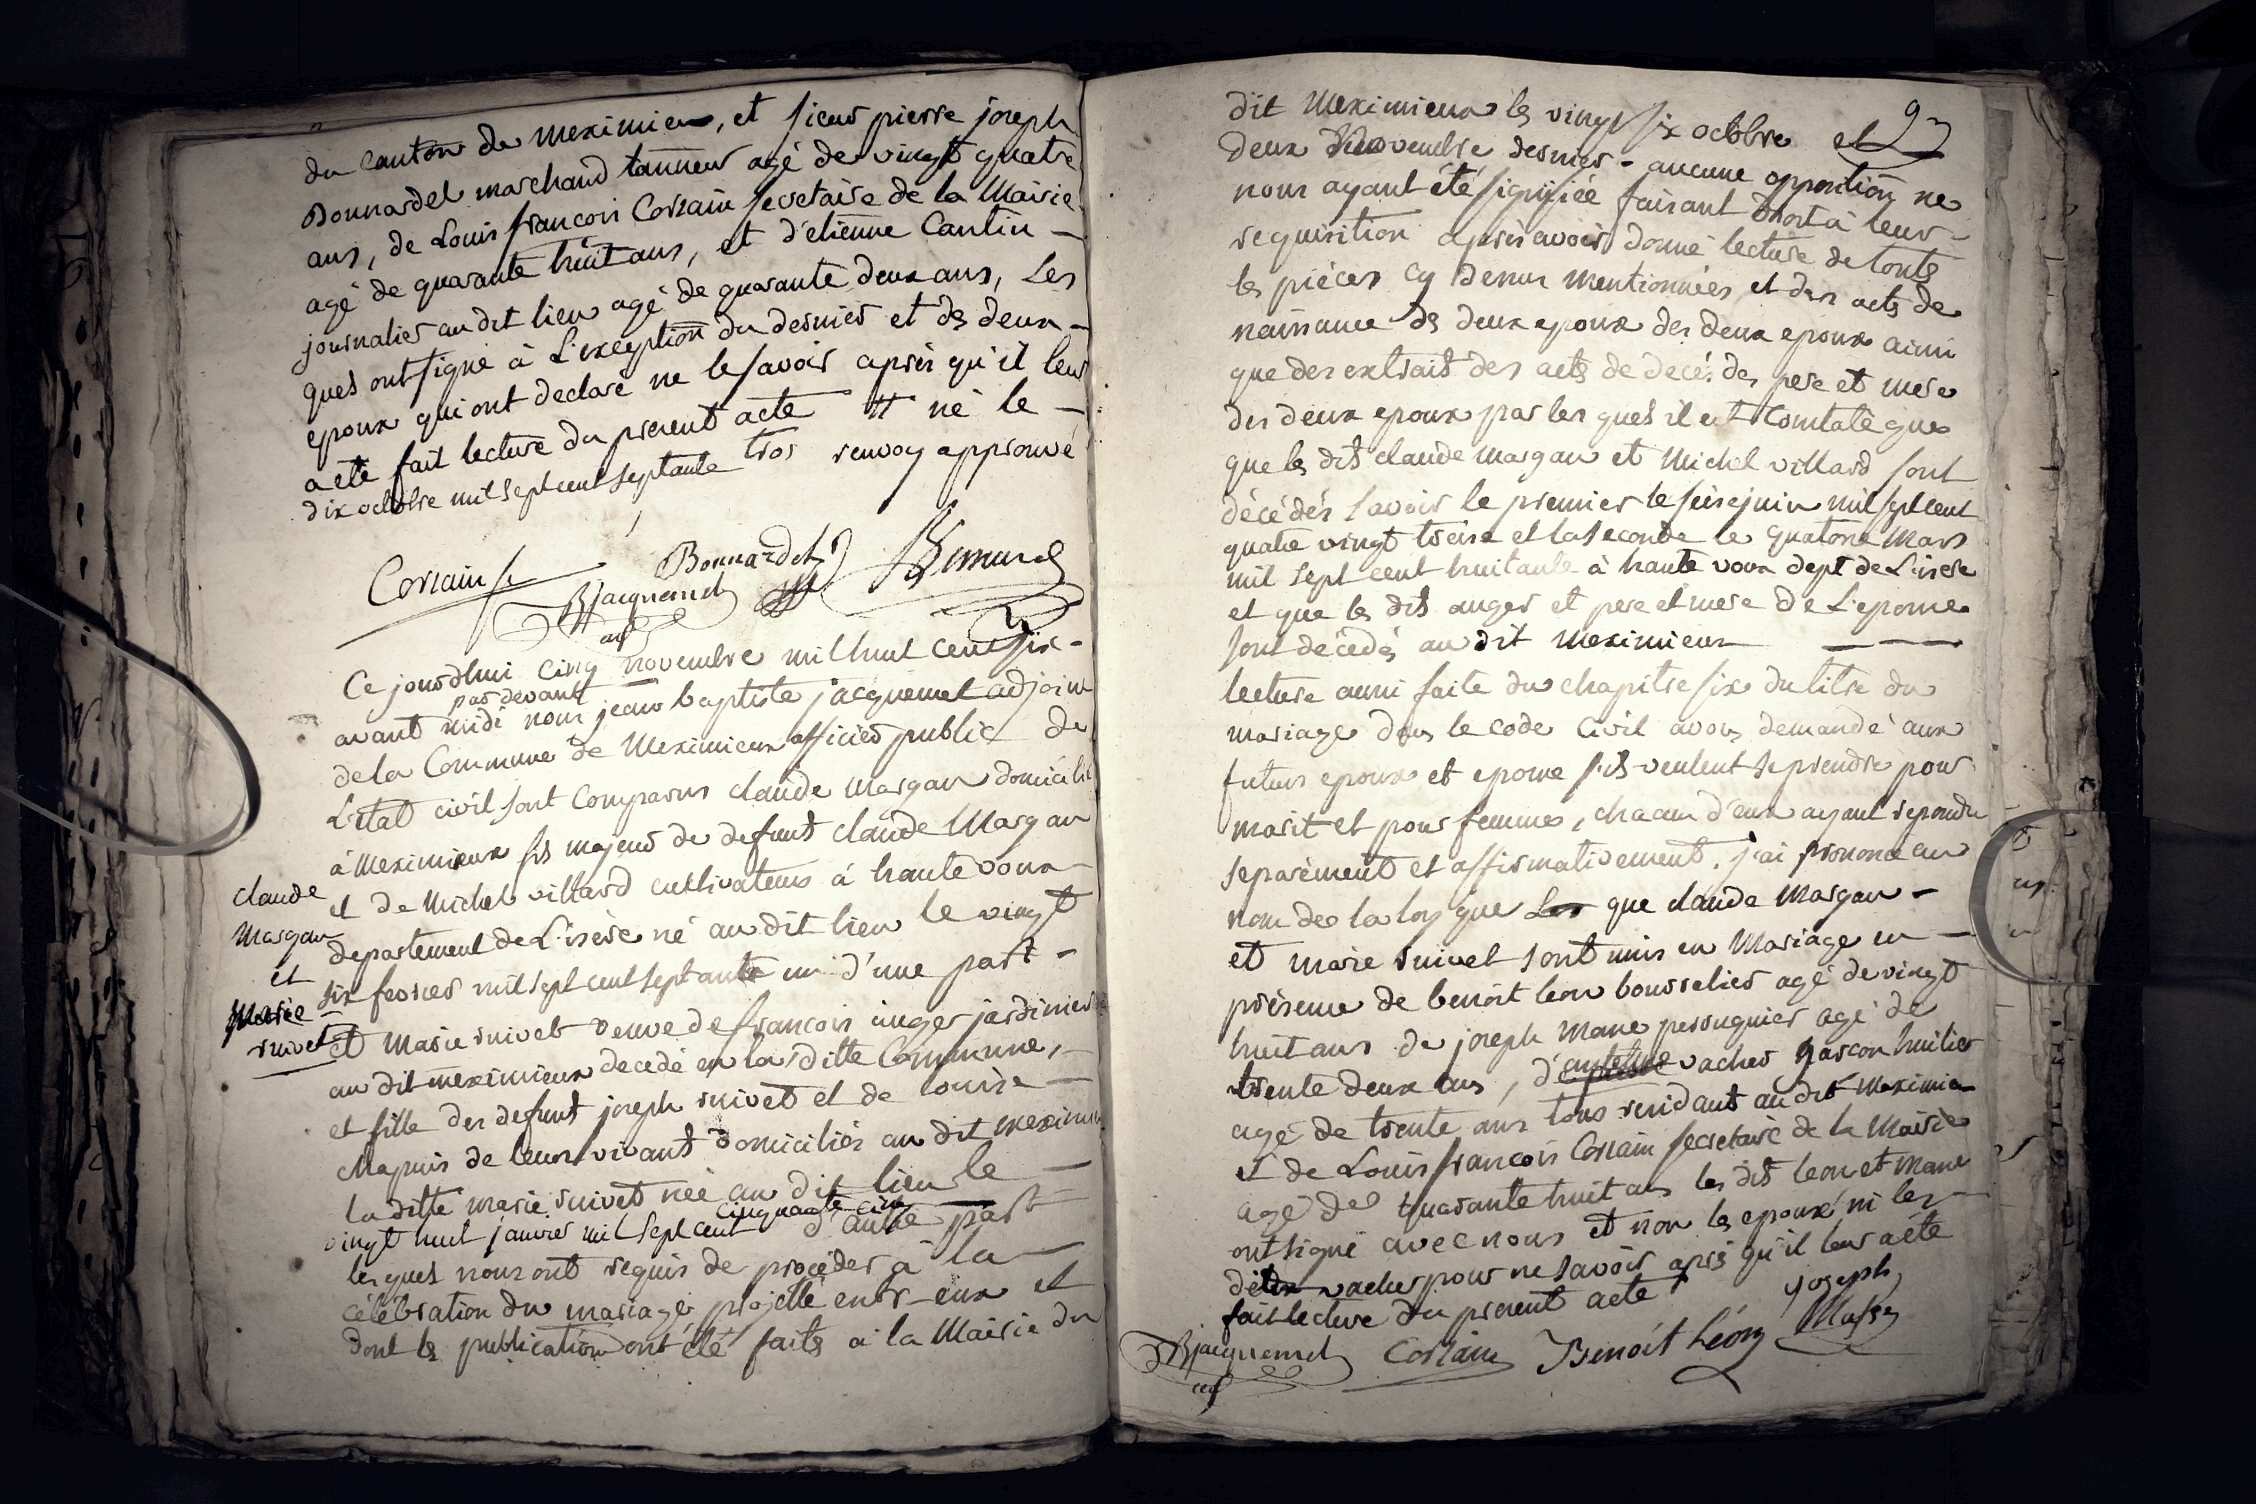 du Canton de meximieu, et sieur pierre joseph
Bonnardel marchand tanneur agé de vingt quatre
ans, de Louis françois Corsain secretaire de la Mairie
agé de quarante huit ans, et d'etienne Cantin
journalier au dit lieu agé de quarante deux ans, Les
quels ont signé à L'exception du dernier et des deux
epoux qui ont declaré ne le savoir après qu'il leur
a eté fait lecture du present acte # né le
dix octobre mil sept cent septante trois renvoy approuvé
Corsain Bonnardel
BJacquemet
Ce jourd'hui cinq novembre mil huit cent six
avant midi par devant nous jean baptiste jacquemet adjoint
de la Commune de Meximieux officier public de
L'etat civil sont Comparus claude Margan domicilié
à Meximieux fils majeur de defunt claude Margan
et de Michel villard cultivateurs à haute voux
departement de L'isère né au dit lieu le vingt
six fevrier mil sept cent septante un d'une part
claude
Margan
et
Marie
rivet
et Marie rivet veuve de francois auger jardinier
au dit meximieux decedé en la ditte Commune,
et fille des defunt joseph rivet et de Louise
chapuis de leur vivant domiciliés au dit meximieu
la ditte marie rivet née au dit lieu le
vingt huit janvier mil sept cent cinquante cinq d'autre part
les quels nous ont requis de proceder à la
célébration du mariage projetté entr-eux et
dont les publication ont été faites a la Mairie du
9
dit Meximieux les vingt six octobre et
deux novembre dernier - aucune opposition ne
nous ayant été signifiée faisant droit à leur
requisition après avoir donné lecture de toutes
les pièces cy dessus mentionnées et des actes de
naissance des deux epoux des deux epoux ainsi
que des extraits des actes de decès des pere et mere
des deux epoux par les quels il est Constaté que
que les dits claude margan et Michel villard sont
décédés savoir le premier le seise juin mil sept cent
quatre vingt treise et la seconde le quatorse Mars
mil sept cent huitante à haute voux dept de L'isere
et que les dits auger et pere et mere de L'epouse
sont décédés au dit meximieux
lecture aussi faite du chapitre six du titre du
mariage dans le code Civil avons demandé aux
futurs epoux et epouse s'ils veulent se prendre pour
marit et pour femme, chacun d'eux ayant repondu
separément et affirmativement. j'ai prononcé au
nom de la loy que Les que claude Margan
et marie rivet sont unis en Mariage en
présence de benoit leon bourrelier agé de vingt
huit ans de joseph Mane perruquier agé de
trente deux ans, d'anthelme vacher garcon huilier
agé de trente ans tous residants au dit Meximieu
et de Louis francois Corsain secretaire de la Mairie
agé de quarante huit ans les dits leon et Mane
ont signé avec nous et non les epoux ni les
dit vacher pour ne savoir après qu'il leur a été
fait lecture du present acte
BJacquemet Corsain Benoit Léon joseph